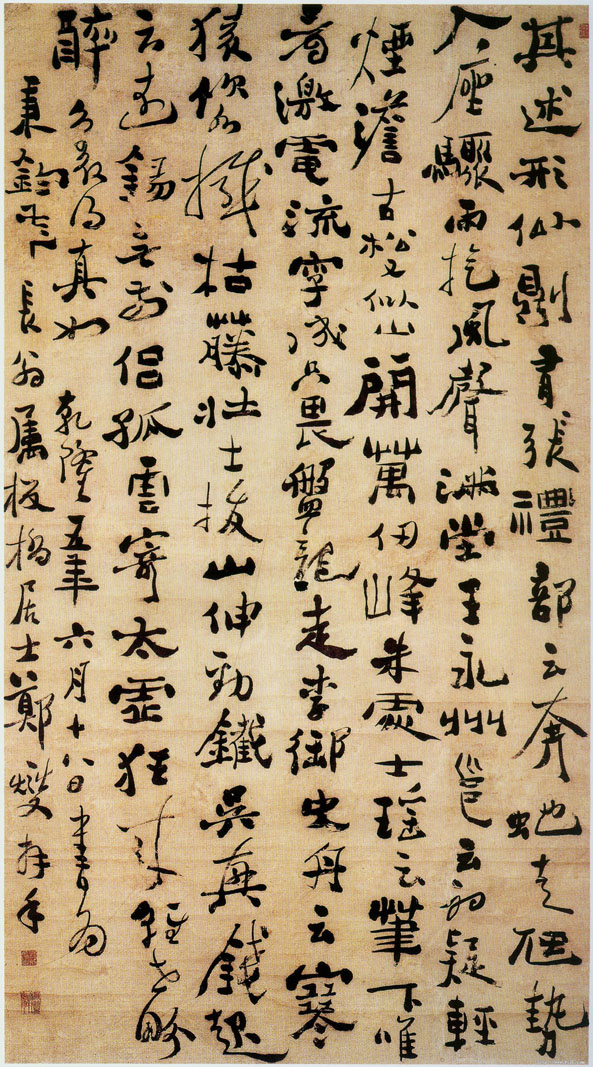 其述形似則有張禮部云奔虵走虺勢
入座驟雨旋風聲滿堂王永州邕云初疑輕
煙澹古松又似山開萬仞峰朱處士瑤云筆下唯
看激電流字成只畏盤龍走李御史舟云寒
猿飲水撼枯藤壯士拔山伸勁鐵吳興錢起
云遠錫無前侶孤雲寄太虛狂來輕世界
醉裏得真如 乾隆五年六月十八日書為
長翁屬板橋居士鄭燮拜手